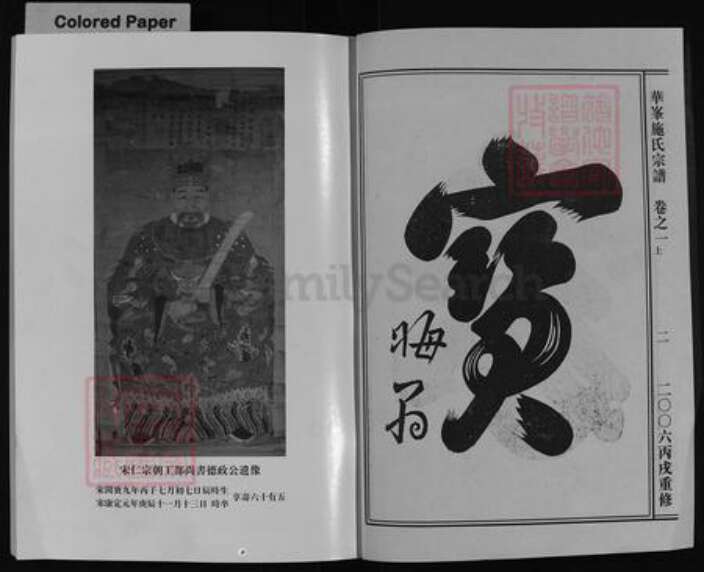 Colored Paper
華峯施氏宗譜 卷之一上
二
二〇〇六丙戌重修
晦翁
FamilySearch
宋仁宗朝工部尚書德政公遺像
宋開寶九年丙子七月初七日辰時生
宋康定元年庚辰十一月十三日 時卒
享壽六十有五